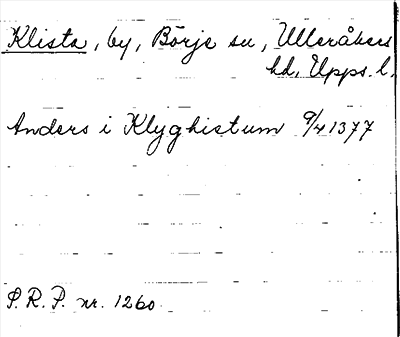 Klista, by, Börje sn, Ulleråkers
hd, Upps. l.
Anders i Klyghistum 9/4 1377
S.R.P. nr. 1260